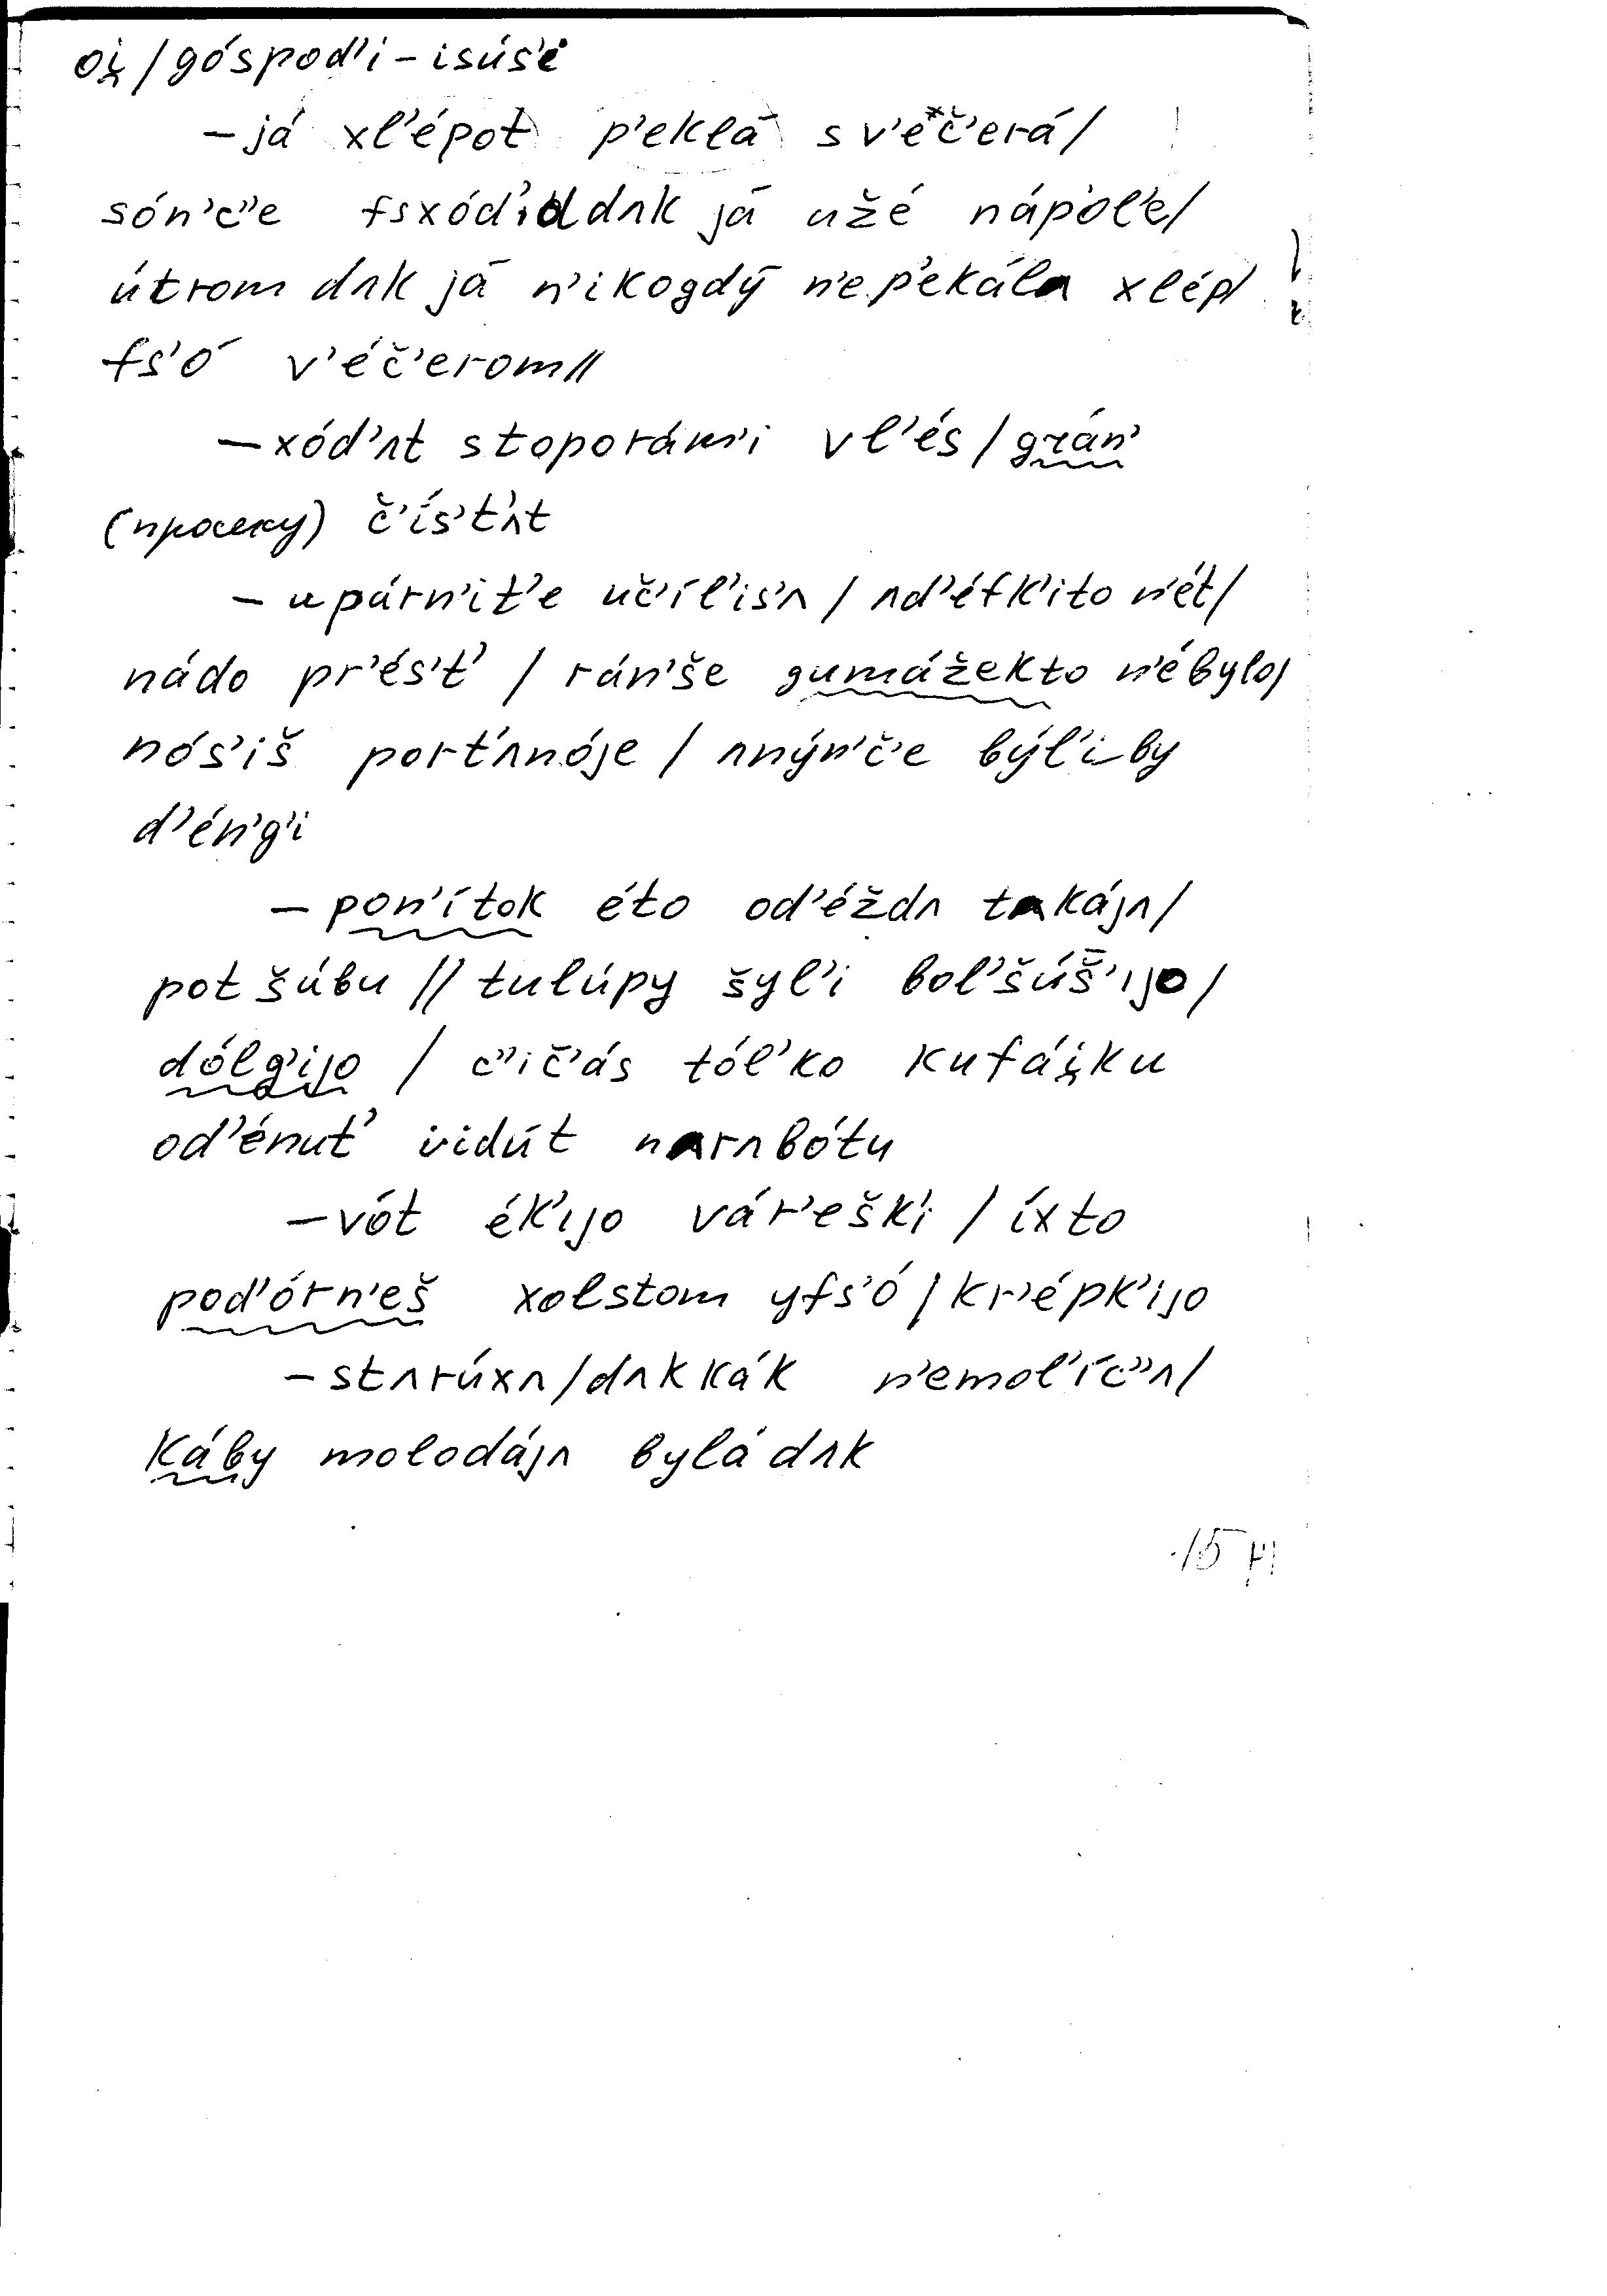 oi̯ / góspod'i – isús'e
– já xl'épot p'eklá s v'eč'erá /
són'c''e fsxód'iddʌk já užé nápol'e /
útrom dʌk já n'ikogdý n'ep'ekála xlép /
fs'ó v'éč'erom //
– xód'ʌt stoporám'i vl'és / grán'
(просеку) č'ís't'ʌt
– upárn'it'e učíl'is'ʌ / ʌd'éfk'ito n'ét /
nádo pr'és't' / rán'še gumážekto n'ébylo /
nós'iš port'ʌnóje / ʌnýn'č'e býl'i by
d'én'g'i
– pon'ítok éto od'éždʌ takájʌ /
pot šúbu // tulúpy šyl'i bol'šúš̄'ijo /
dólg'ijo / c''ič'ás tól'ko kufái̯ku
od'énut' iidút narʌbótu
– vót ék'ijo vár'ešk'i / íxto
pod'órn'eš xolstom yfs'ó / kr'épk'ijo
– stʌrúxʌ / dʌkkák n'emol'íc''ʌ /
káby molodájʌ bylá dʌk